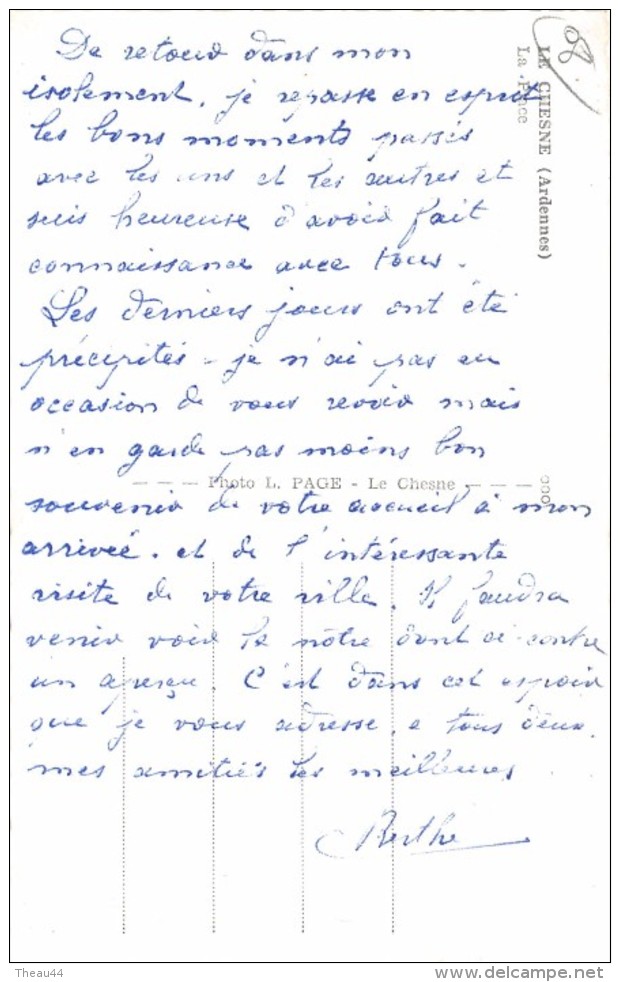 De retour dans mon
isolement, je repasse en esprit
les bons moments passés
avec les uns et les autres et
suis heureuse d'avoir fait
connaissance avec tous.
Les derniers jours ont été
précipités - je n'ai pas eu
occasion de vous revoir mais
n'en garde pas moins bon
souvenir de votre accueil à mon
arrivée. et de l'intéressante
visite de votre ville. Il faudra
venir voir la nôtre dont ci-contre
un aperçu. C'est dans cet espoir
que je vous adresse, a tous deux,
mes amitiés les meilleures
Berthe
08
LE CHESNE (Ardennes)
La Place
— — — Photo L. PAGE - Le Chesne — — —
Theau44
www.delcampe.net